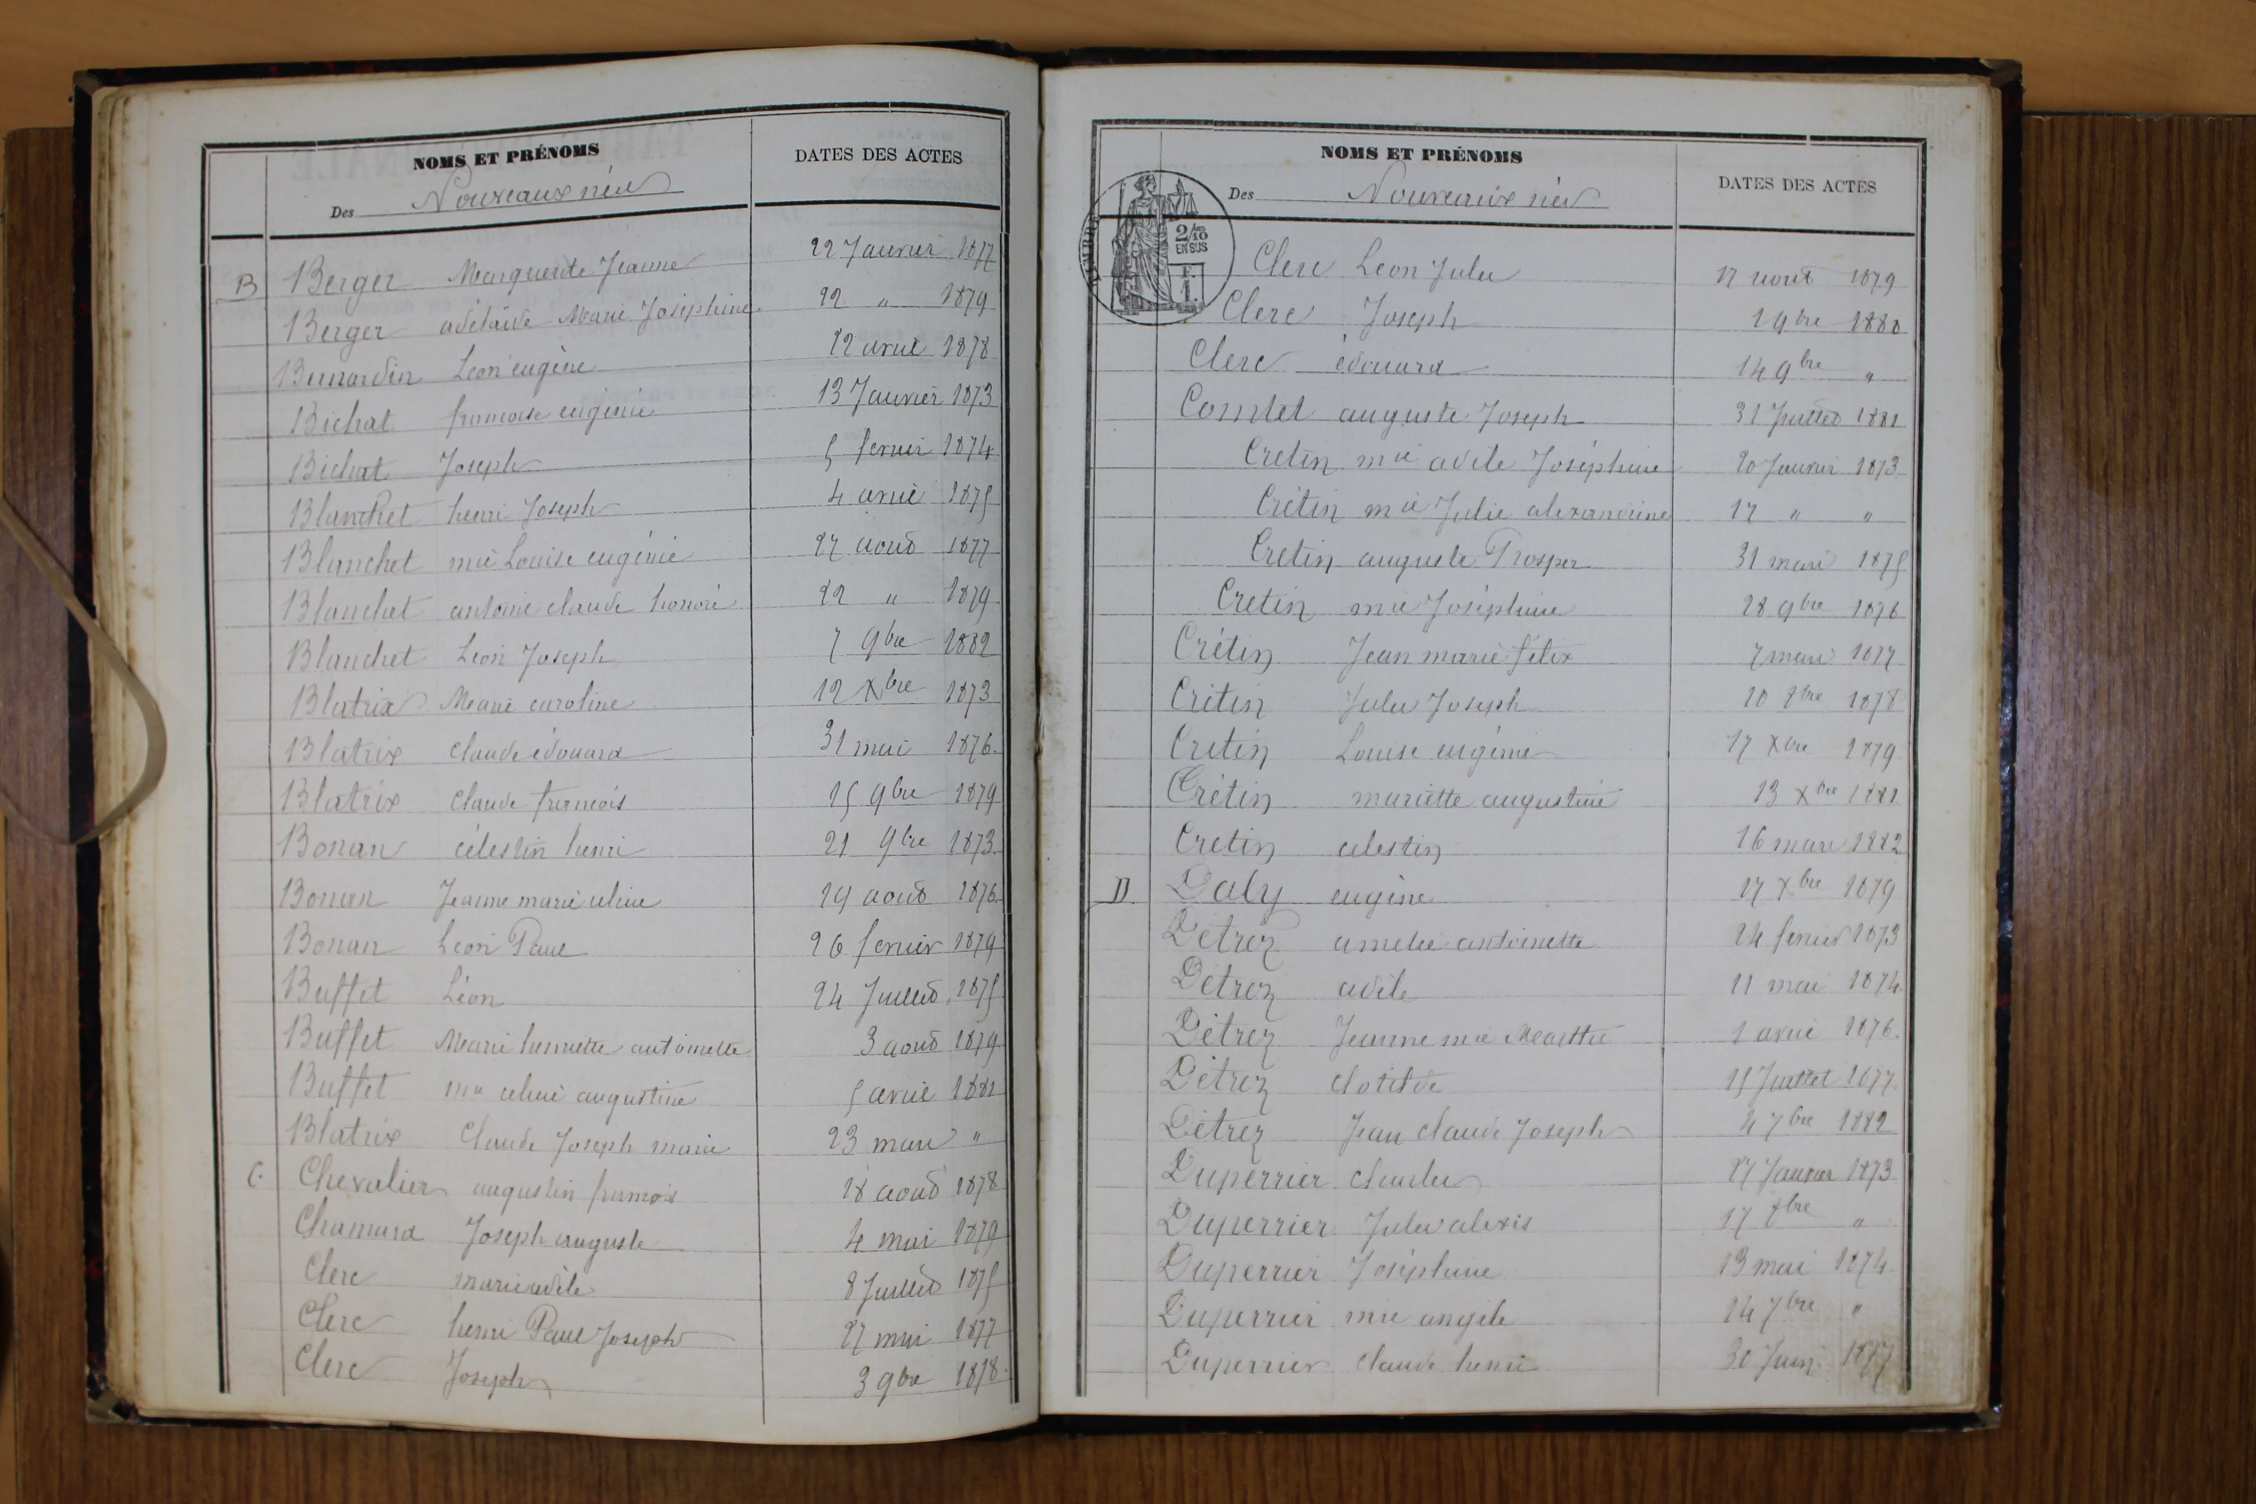 NOMS ET PRÉNOMS DATES DES ACTES
Des Nouveaux nés
B Berger Marguerite Jeanne 22 Janvier 1877
Berger adélaïde Marie Joséphine 22 " 1879
Bernardin Léon eugène 12 avril 1878
Bichat francoise eugénie 13 Janvier 1873
Bichat Joseph 5 fevrier 1874
Blanchet henri Joseph 4 avril 1875
Blanchet mie Louise eugénie 27 aout 1877
Blanchet antoine claude honoré 22 " 1879
Blanchet Léon Joseph 7 9bre 1882
Blatrix Marie caroline 12 Xbre 1873
Blatrix claude édouard 31 mai 1876
Blatrix claude francois 15 9bre 1879
Bonan célestin henri 21 9bre 1873
Bonan Jeanne marie celine 29 aout 1876
Bonan Leon Paul 26 fevrier 1879
Buffet Léon 24 Juillet 1875
Buffet Marie henriette antoinette 3 aout 1879
Buffet mie celine augustine 5 avril 1881
Blatrix Claude Joseph marie 23 mars "
C. Chevalier augustin francois 18 aout 1878
Chamard Joseph auguste 4 mai 1879
Clerc marie adèle 8 Juillet 1875
Clerc henri Paul Joseph 27 mai 1877
Clerc Joseph 3 9bre 1878
NOMS ET PRÉNOMS DATES DES ACTES
Des Nouveaux nés
TIMBRE
2/10
EN SUS
F.
1.
Clerc Leon Jules 17 aout 1879
Clerc Joseph 1 9bre 1880
Clerc édouard 14 9bre "
Comtet auguste Joseph 31 Juillet 1881
Cretin mie adèle Joséphine 20 Janvier 1873
Crétin mie Julie alexandrine 17 " "
Cretin auguste Prosper 31 mars 1875
Cretin mie Joséphine 28 9bre 1876
Crétin Jean marie félix 7 mars 1877
Crétin Jules Joseph 20 8bre 1878
Cretin Louise eugénie 17 Xbre 1879
Crétin mariette augustine 13 Xbre 1881
Cretin celestin 16 mars 1882
D. Daly eugène 17 Xbre 1879
Détrez amelie antoinette 24 fevrier 1873
Détrez adèle 11 mai 1874
Détrez Jeanne mie Marthe 1 avril 1876.
Détrez clotilde 15 Juillet 1877
Détrez Jean claude Joseph 4 7bre 1882
Duperrier charles 27 Janvier 1873
Duperrier Jules alexis 17 8bre "
Duperrier Joséphine 13 mai 1874
Duperrier mie angèle 24 7bre "
Duperrier claude henri 30 Juin 1877